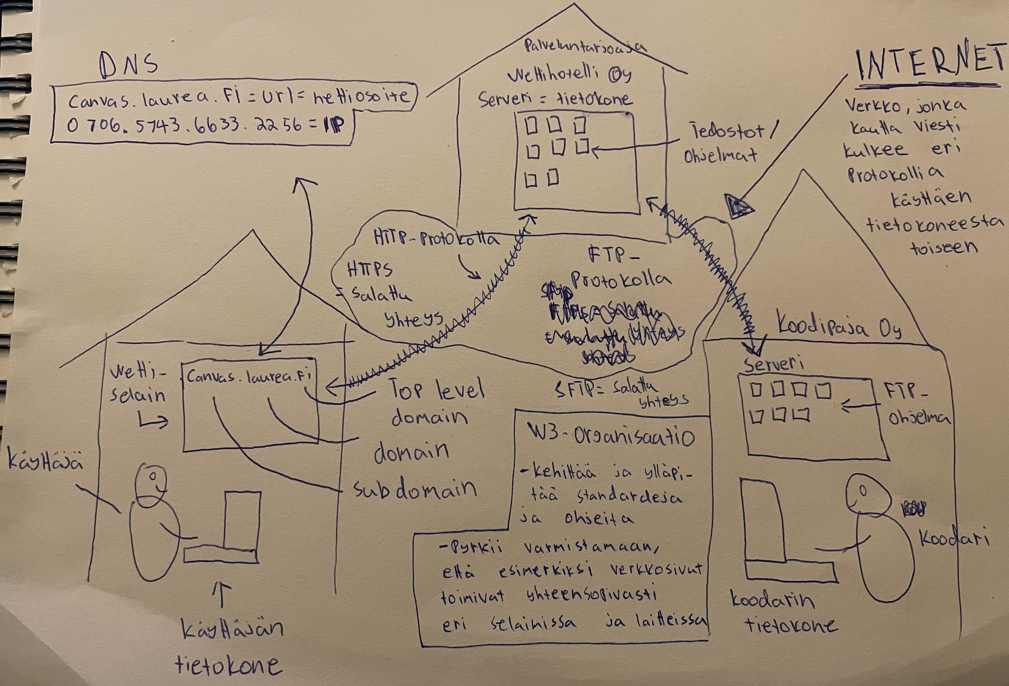 DNS
Canvas.laurea.Fi = url = nettiosoite
0706.5743.6633.2256 = IP
Palveluntarjoaja
Nettihotelli Oy
Serveri = tietokone
Tiedostot/
ohjelmat
INTERNET
Verkko, jonka
kautta viesti
kulkee eri
Protokollia
käyttäen
tietokoneesta
toiseen
HTTP-Protokolla
HTTPS
= Salattu
yhteys
FTP-
Protokolla
SFTP = Salattu
yhteys
Netti-
selain
Canvas.laurea.Fi
Top level
domain
domain
subdomain
Käyttäjä
Käyttäjän
tietokone
W3-Organisaatio
-Kehittää ja ylläpi-
tää standardeja
ja ohjeita
-Pyrkii varmistamaan,
että esimerkiksi verkkosivut
toimivat yhteensopivasti
eri selaimissa ja laitteissa
Koodipaja Oy
Serveri
FTP-
ohjelma
Koodari
Koodarin
tietokone